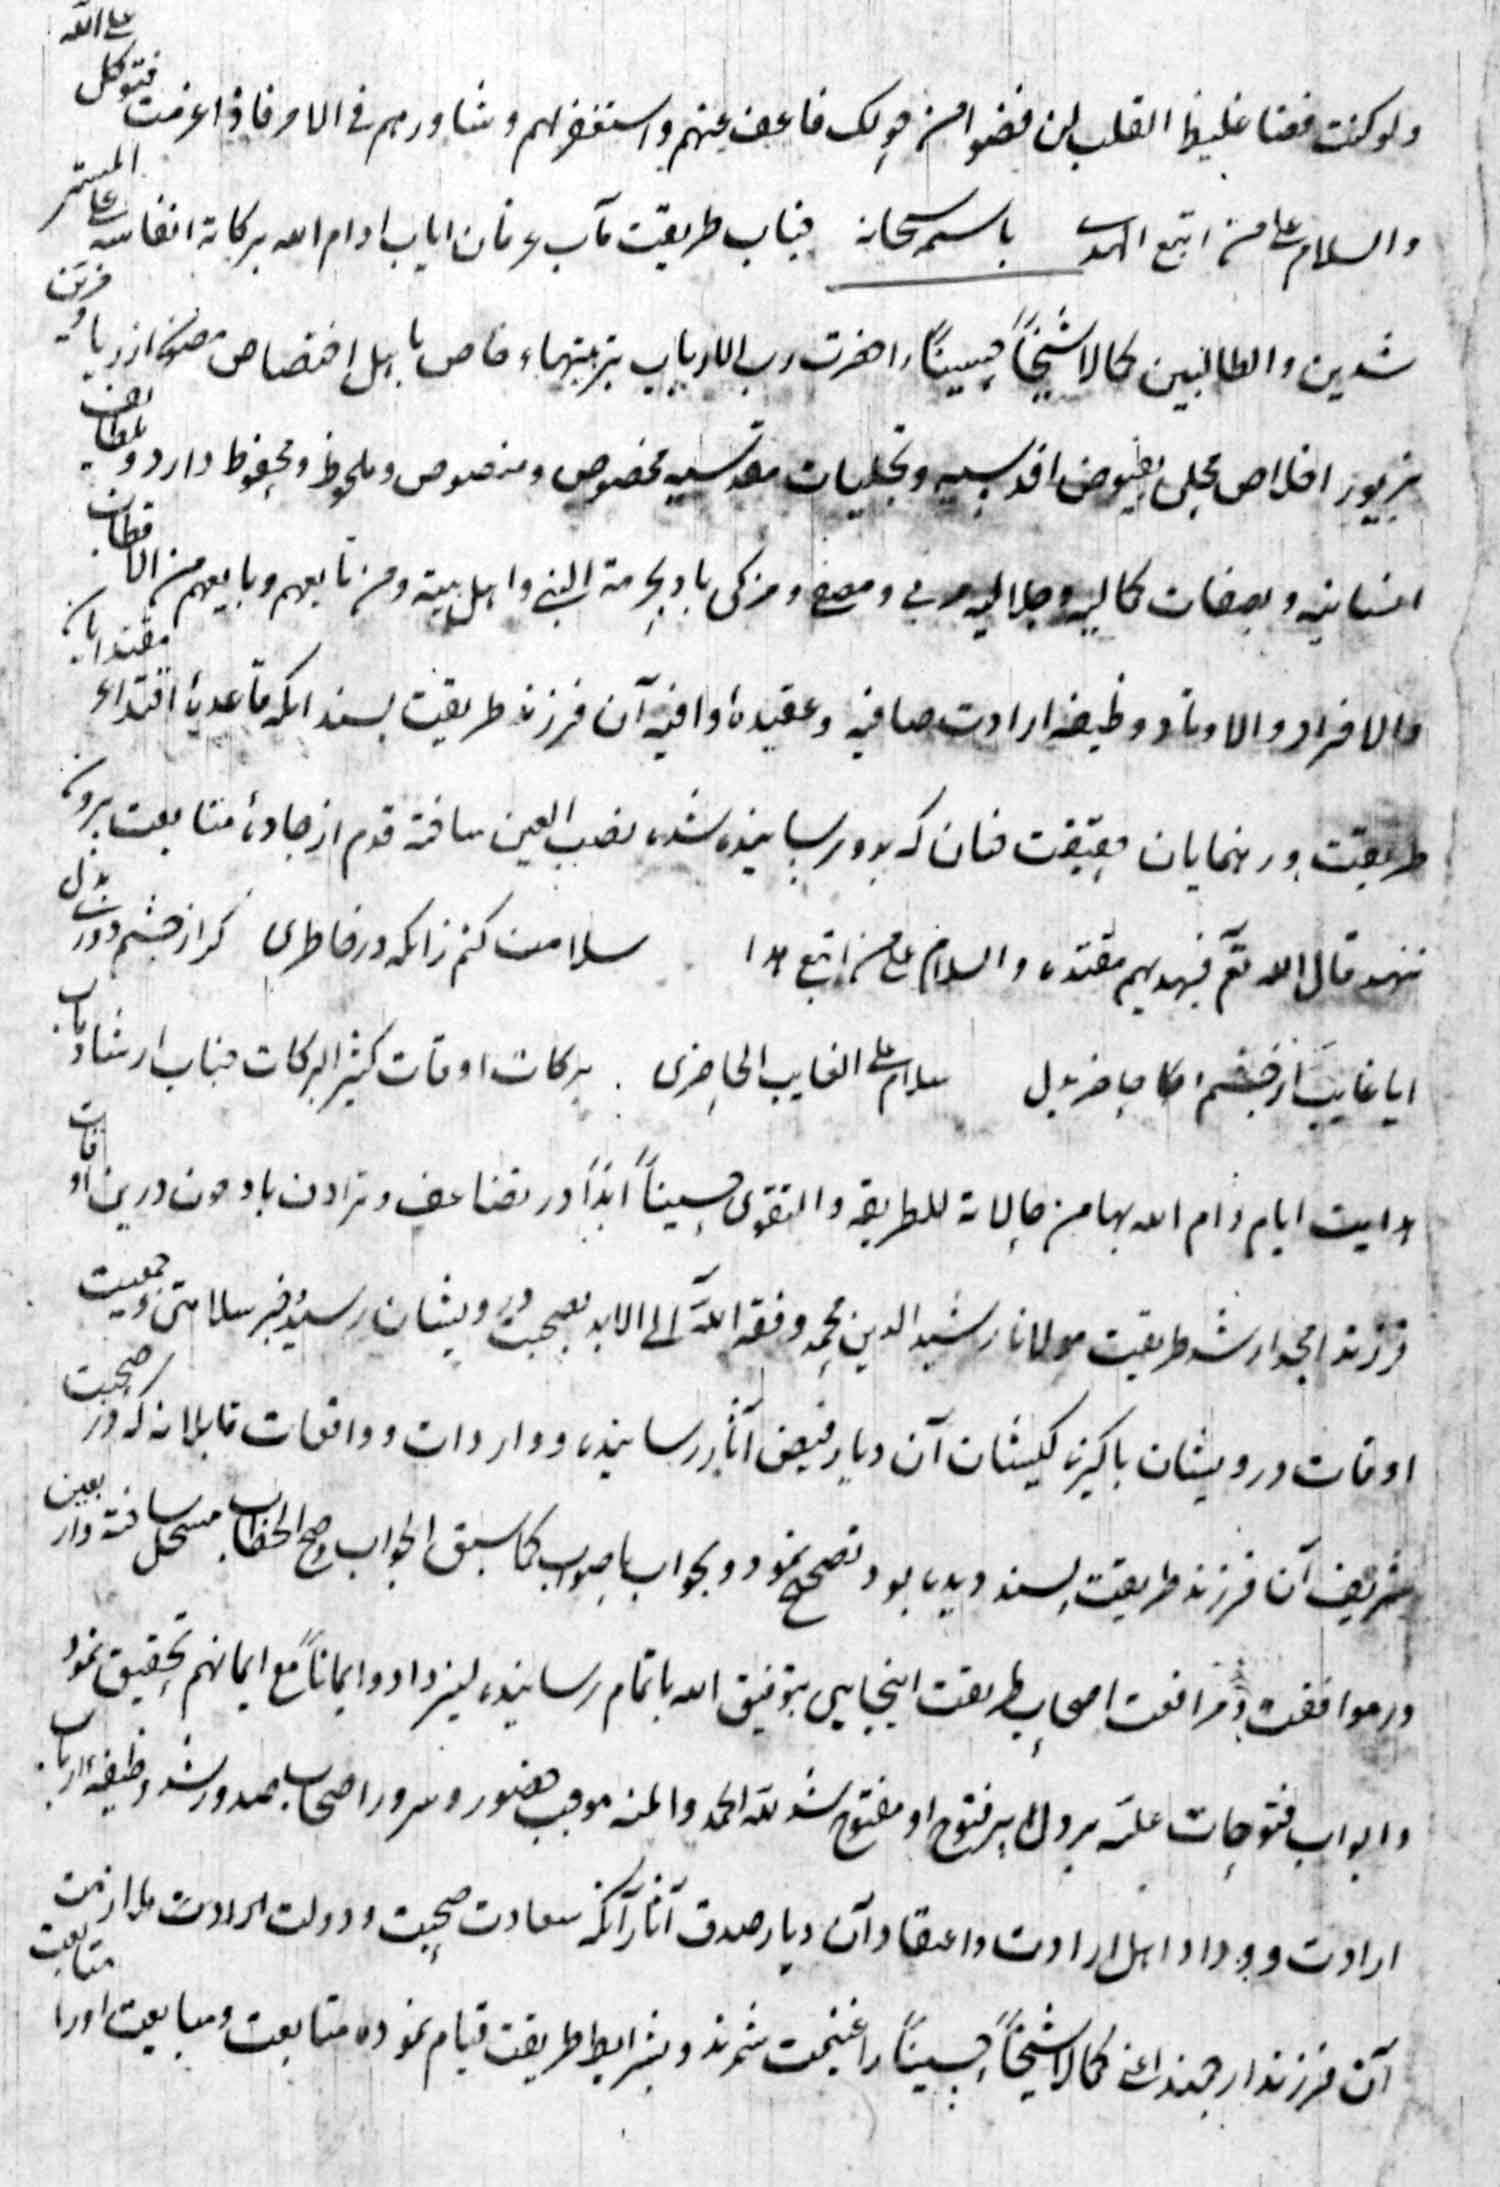 ولو کنت فظا غلیظ القلب لن فضوا من حولک فاعف عنهم واستغفر لهم وشاورهم فی الامر فاذا عزمت فتوکل علی الله
والسلام علی من اتبع الهدی باسمه سبحانه جناب طریقت مآب عرفان ایاب ادام الله برکاته انفاسه علی المستر
شدین والطالبین کمالا شیخاً حسیناً را حضرت رب الارباب بتربیتهاء خاص با اهل اختصاص مصون از ریا و مزین
بزیور اخلاص محلی بفیوض اقدسیه و تجلیات مقدسیه مخصوص و منصوص و ملحوظ و محفوظ دارد و بلطایف
انسانیه و بصفات کمالیه و جلالیه مربی و مصفی و مزکی باد بحرمة النبی و اهل بیته ومن تابعهم وبایعهم من الاقطاب
والافراد والاوتاد وظیفه ارادت صافیه و عقیدهٔ وافیه آن فرزند طریقت پسند آنکه قاعدهٔ اقتداء مقتدایان
طریقت و رهنمایان حقیقت چنان که بدو رسانیده شده نصب العین ساخته قدم از جادهٔ متابعت برون
ننهد قال الله تع فبهدیهم مقتده والسلام علی من اتبع هدا سلامت کنم زانکه در خاطری گر از چشم دورت بدل
ایا غایب از چشم حاضر بدل سلام علی الغایب الحاضری برکات اوقات کثیر البرکات جناب ارشاد مآب
هدایت ایام دام الله بها من حالاته للطریقه والتقوی حسیناً ابداً در تضاعف و ترادف باد چون درین اوقات
فرزند امجد ارشد طریقت مولانا رشید الدین محمد وفقه الله الی الابد بصحبت درویشان رسید خبر سلامتی و جمعیت
اوقات درویشان پاکیزه کیشان آن دیار فیض آثار رسانیده و واردات و واقعات قابلانه که در صحبت
شریف آن فرزند طریقت پسند دیده بود تصحیح نمود و بجواب باصواب کما سبق الجواب صح الخطاب مسجل ساخته و اربعین
در موافقت و مرافقت اصحاب طریقت اینجایی بتوفیق الله باتمام رسانیده لیزدادوا ایماناً مع ایمانهم تحقیق نمود
و ابواب فتوحات علیه بر دل پر فتوح او مفتوح شد لله الحمد والمنه موجب حضور و سرور اصحاب صدور شد وظیفهٔ ارباب
ارادت و وداد اهل ارادت و اعتقاد آن دیار صدق آثار آنکه سعادت صحبت و دولت ارادت ملازمت
آن فرزند ارجمند اعنی کمالا شیخاً حسیناً را غنیمت شمرند و بشرایط طریقت قیام نموده متابعت و مبایعت او را متابعت